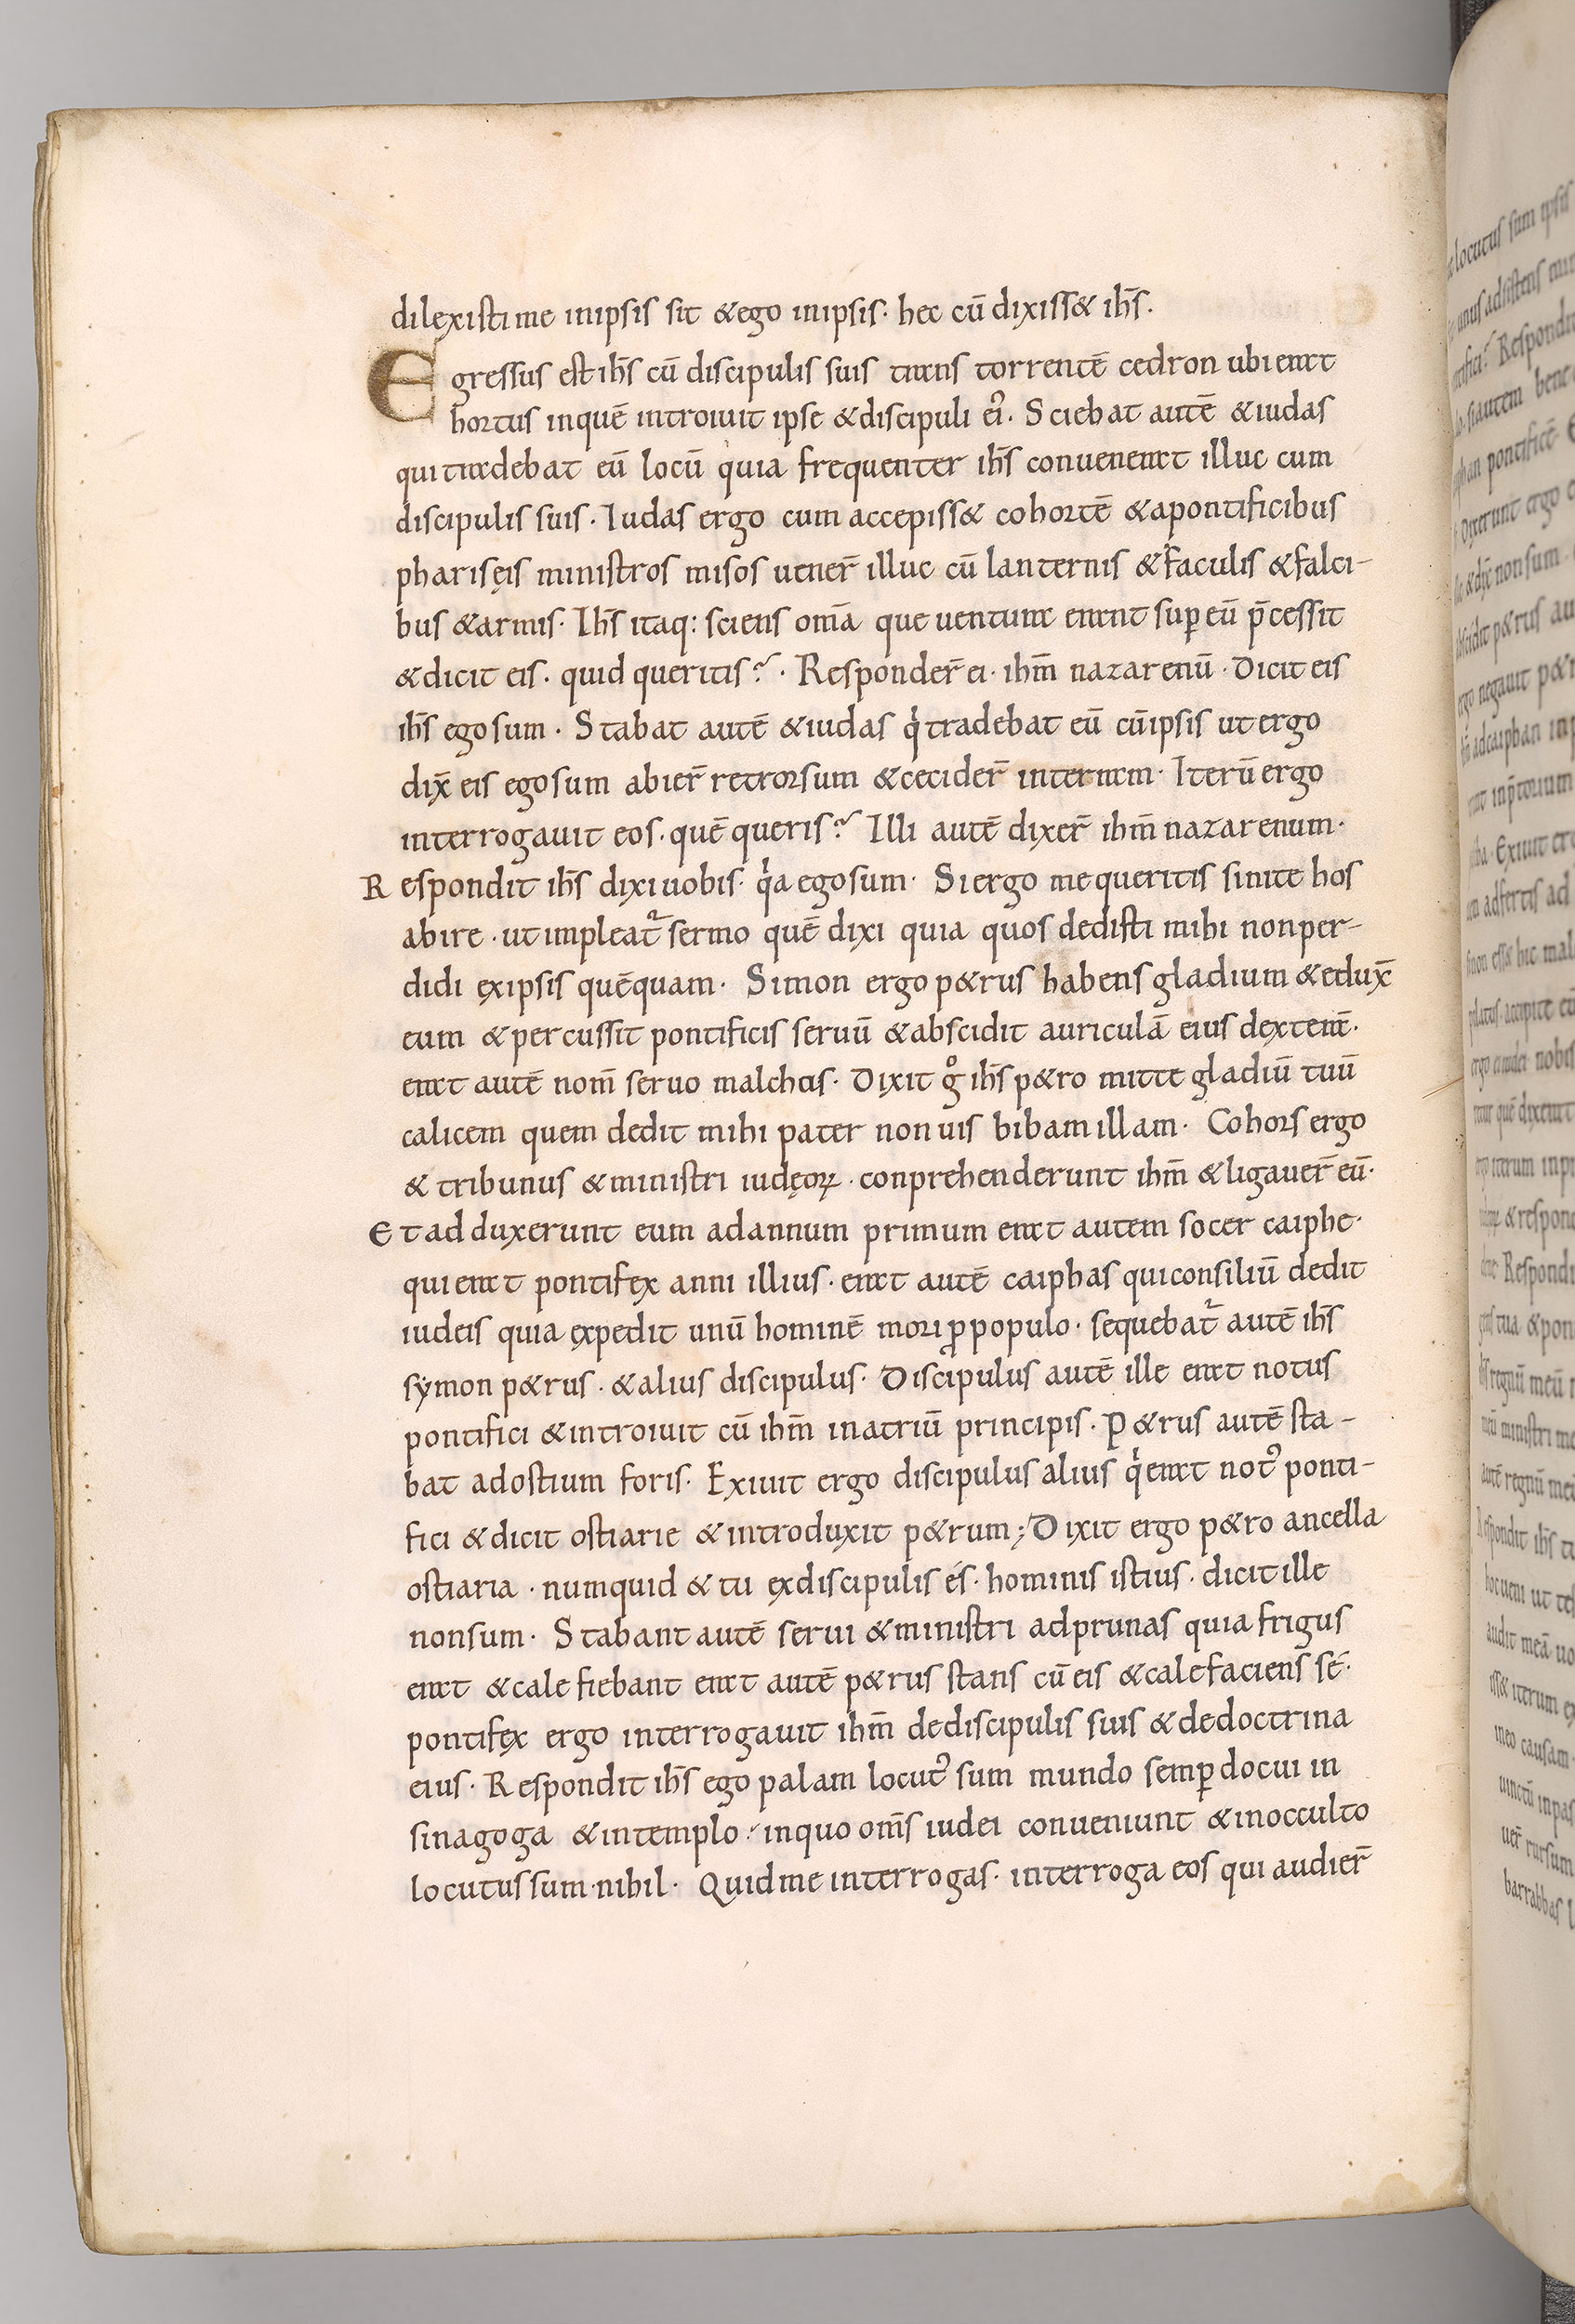 dilexisti me inipsis sit &ego inipsis· hec cū dixiss& ih̄s.
Egressus est ih̄s cū discipulis suis trans torrentē cedron ubi erat
hortus inquē introiuit ipse &discipuli ei᾿. Sciebat autē &iudas
qui tradebat eū locū quia frequenter ih̄s conuenerat illuc cum
discipulis suis. Iudas ergo cum accepiss& cohortē &apontificibus
pharisęis ministros misos uener̄ illuc cū lanternis &faculis &falci-
bus &armis. Ih̄s itaq: sciens om̄a que uentura erant suꝑ eū p̄cessit
&dicit eis. quid queritis?. Responder̄ ei. ih̄m nazarenū. Dicit eis
ih̄s ego sum. Stabat autē &iudas qⁱ tradebat eū cūipsis ut ergo
dix̄ eis ego sum abier̄ retrorsum &cecider̄ interram. Iterū ergo
interrogauit eos. quē queris? Illi autē dixer̄ ih̄m nazarenum.
Respondit ih̄s dixi uobis. qⁱa ego sum. Si ergo me queritis sinite hos
abire. ut impleat᷑ sermo quē dixi quia quos dedisti mihi non per-
didi exipsis quēquam. Simon ergo p&rus habens gladium &edux̄
eum &percussit pontificis seruū &abscidit auriculā eius dexterā.
erat autē nom̄ seruo malchus. Dixit gͦ ih̄s p&ro mitte gladiū tuū
calicem quem dedit mihi pater non uis bibam illam. Cohors ergo
& tribunus &ministri iudęoꝝ. conprehenderunt ih̄m &ligauer̄ eū.
Et adduxerunt eum adannum primum erat autem socer caiphe.
qui erat pontifex anni illius. erat autē caiphas qui consiliū dedit
iudeis quia expedit unū hominē mori ꝓpopulo. sequebat᷑ autē ih̄s
sẏmon p&rus. &alius discipulus. Discipulus autē ille erat notus
pontifici &introiuit cū ih̄m inatriū principis. P&rus autē sta-
bat adostium foris. Exiuit ergo discipulus alius qⁱ erat not᾿ ponti-
fici &dicit ostiarie &introduxit p&rum; Dixit ergo p&ro ancella
ostiaria. numquid &tu exdiscipulis és. hominis istius. dicit ille
non sum. Stabant autē serui &ministri adprunas quia frigus
erat &calefiebant erat autē p&rus stans cū eis &calefaciens sé.
pontifex ergo interrogauit ih̄m dediscipulis suis &dedoctrina
eius. Respondit ih̄s ego palam locut᾿ sum mundo semꝑ docui in
sinagoga &intemplo. inquo om̄s iudei conueniunt &inocculto
locutus sum nihil. Quid me interrogas. interroga eos qui audier̄